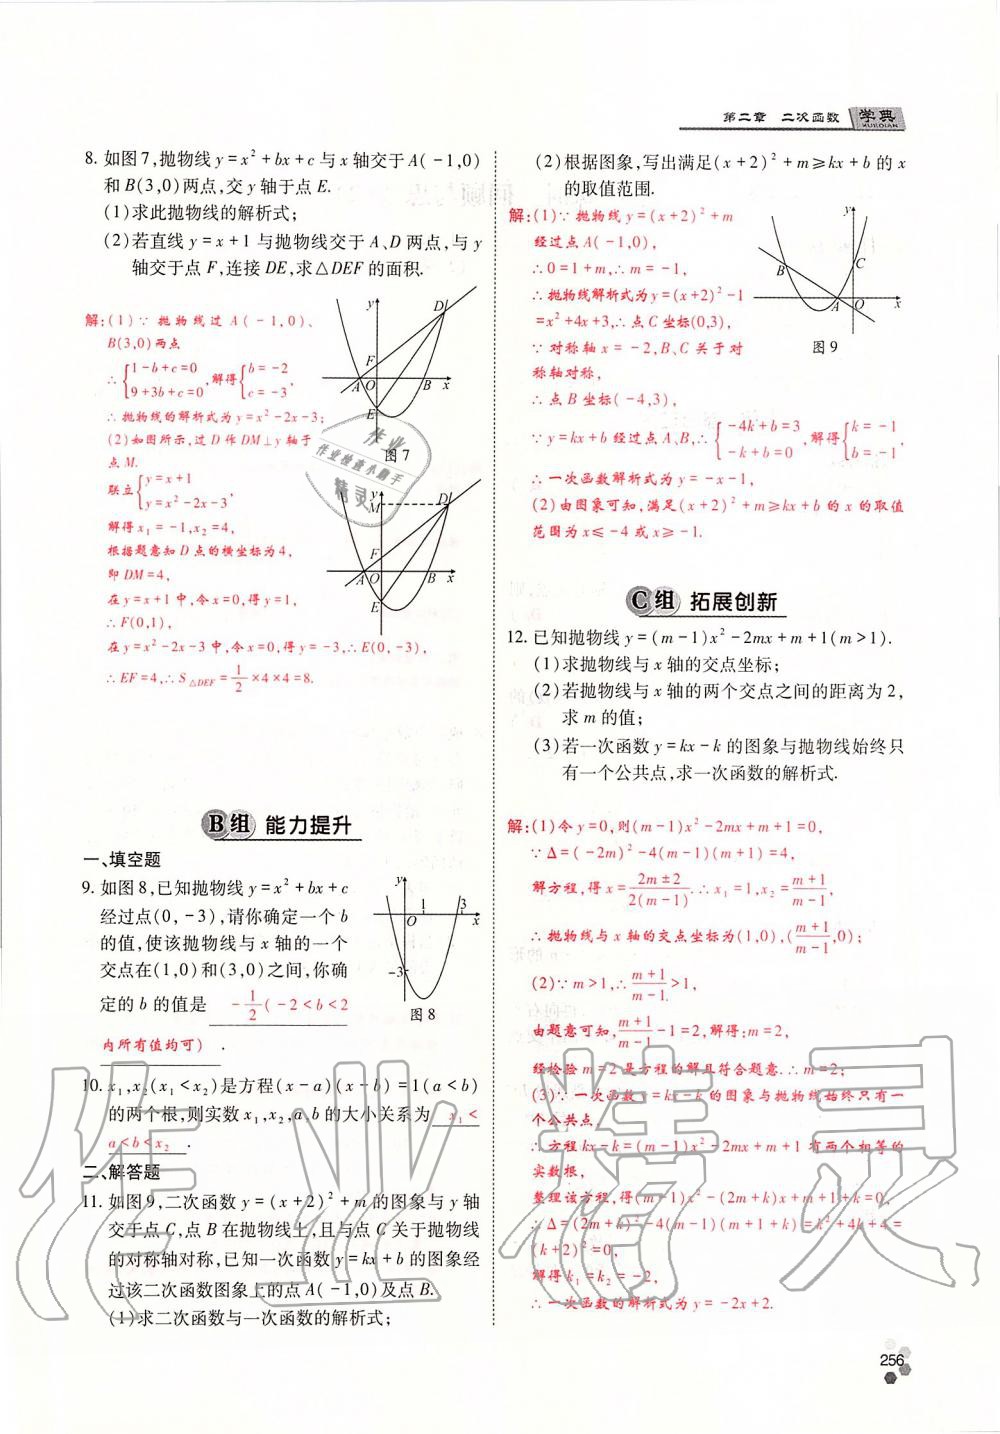 第二章 二次函数 学典
XUEDIAN
8. 如图7,抛物线y=x²+bx+c与x轴交于A(-1,0)
和B(3,0)两点,交y轴于点E.
(1)求此抛物线的解析式;
(2)若直线y=x+1与抛物线交于A、D两点,与y
轴交于点F,连接DE,求△DEF的面积.
解:(1)∵抛物线过A(-1,0)、
B(3,0)两点
∴{1-b+c=0 9+3b+c=0,解得{b=-2 c=-3,
∴抛物线的解析式为y=x²-2x-3;
(2)如图所示,过D作DM⊥y轴于
点M.
联立{y=x+1 y=x²-2x-3,
解得x₁=-1,x₂=4,
根据题意知D点的横坐标为4,
即DM=4,
在y=x+1中,令x=0,得y=1,
∴F(0,1),
在y=x²-2x-3中,令x=0,得y=-3,∴E(0,-3),
∴EF=4,∴S△DEF=1/2×4×4=8.
y D F A O B x E
图7
y M D F A O B x E
B组 能力提升
一、填空题
9. 如图8,已知抛物线y=x²+bx+c
经过点(0,-3),请你确定一个b
的值,使该抛物线与x轴的一个
交点在(1,0)和(3,0)之间,你确
定的b的值是 -1/2(-2<b<2
内所有值均可) .
y 1 3 O x -3
图8
10. x₁,x₂(x₁<x₂)是方程(x-a)(x-b)=1(a<b)
的两个根,则实数x₁,x₂,a,b的大小关系为 x₁<
a<b<x₂ .
二、解答题
11. 如图9,二次函数y=(x+2)²+m的图象与y轴
交于点C,点B在抛物线上,且与点C关于抛物线
的对称轴对称,已知一次函数y=kx+b的图象经
过该二次函数图象上的点A(-1,0)及点B.
(1)求二次函数与一次函数的解析式;
(2)根据图象,写出满足(x+2)²+m≥kx+b的x
的取值范围.
解:(1)∵抛物线y=(x+2)²+m
经过点A(-1,0),
∴0=1+m,∴m=-1,
∴抛物线解析式为y=(x+2)²-1
=x²+4x+3,∴点C坐标(0,3),
∵对称轴x=-2,B、C关于对
称轴对称,
∴点B坐标(-4,3),
∵y=kx+b经过点A、B,∴{-4k+b=3 -k+b=0,解得{k=-1 b=-1
∴一次函数解析式为y=-x-1,
(2)由图象可知,满足(x+2)²+m≥kx+b的x的取值
范围为x≤-4或x≥-1.
y B C A O x
图9
C组 拓展创新
12. 已知抛物线y=(m-1)x²-2mx+m+1(m>1).
(1)求抛物线与x轴的交点坐标;
(2)若抛物线与x轴的两个交点之间的距离为2,
求m的值;
(3)若一次函数y=kx-k的图象与抛物线始终只
有一个公共点,求一次函数的解析式.
解:(1)令y=0,则(m-1)x²-2mx+m+1=0,
∵Δ=(-2m)²-4(m-1)(m+1)=4,
解方程,得x=(2m±2)/(2(m-1)).∴x₁=1,x₂=(m+1)/(m-1),
∴抛物线与x轴的交点坐标为(1,0),((m+1)/(m-1),0);
(2)∵m>1,∴(m+1)/(m-1)>1,
由题意可知,(m+1)/(m-1)-1=2,解得:m=2,
经检验m=2是方程的解且符合题意.∴m=2;
(3)∵一次函数y=kx-k的图象与抛物线始终只有一
个公共点,
∴方程kx-k=(m-1)x²-2mx+m+1有两个相等的
实数根,
整理该方程,得(m-1)x²-(2m+k)x+m+1+k=0,
∴Δ=(2m+k)²-4(m-1)(m+1+k)=k²+4k+4=
(k+2)²=0,
解得k₁=k₂=-2,
∴一次函数的解析式为y=-2x+2.
256
作业
作业检查小助手
精灵
作业精灵